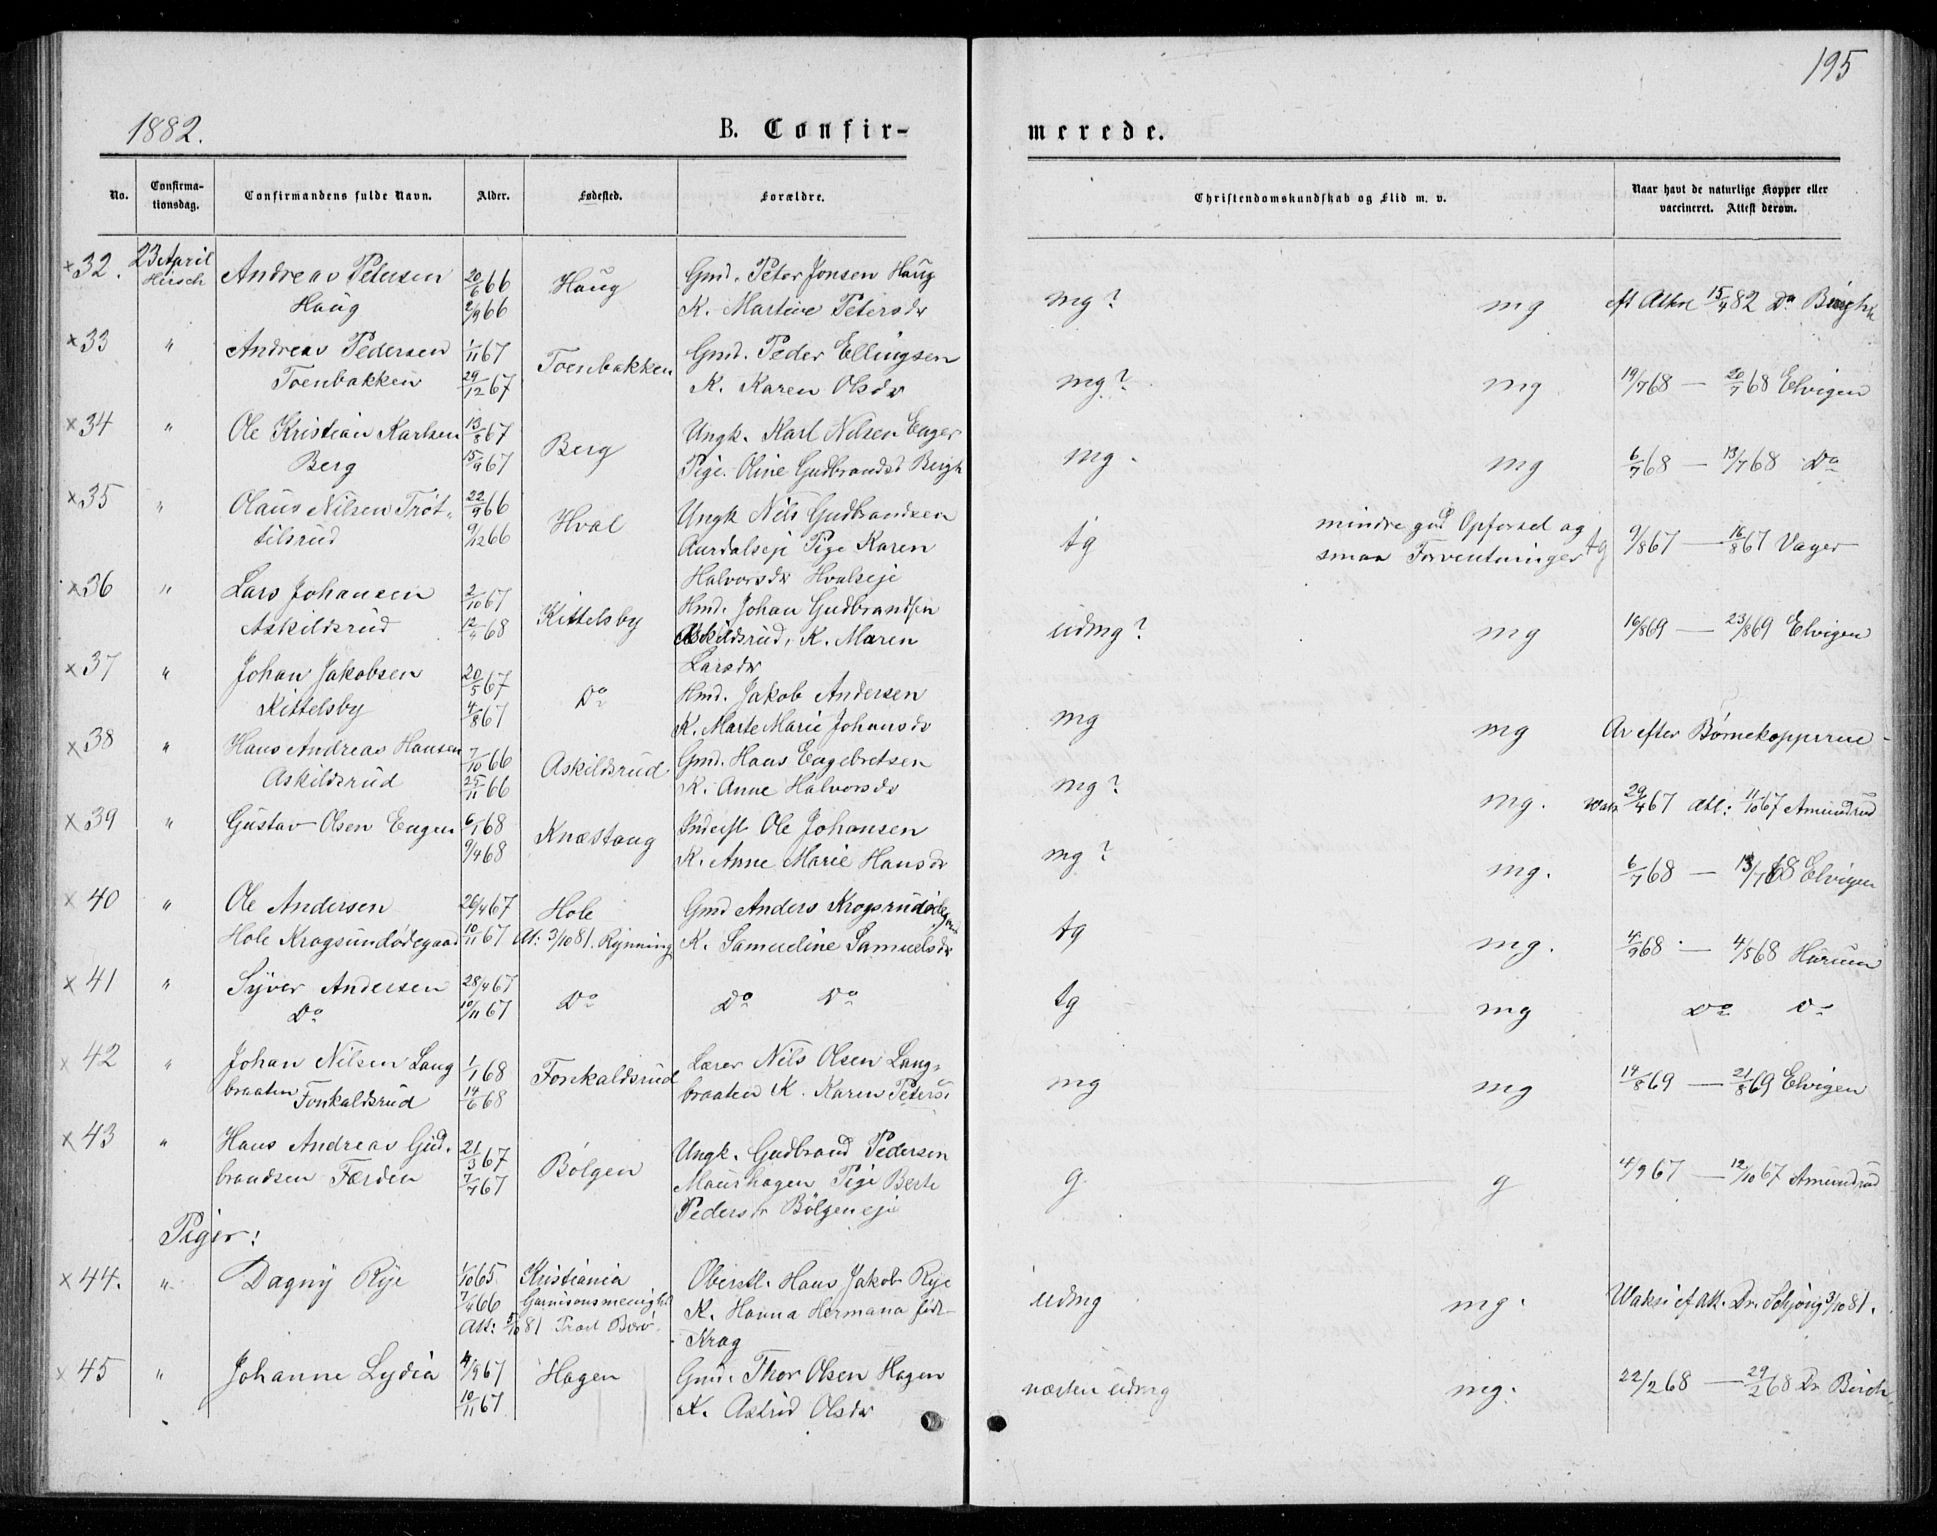 195
1882.
B. Confir-
merede.
No.
Confirma-
tionsdag.
Confirmandens fulde Navn.
Alder.
Fødested.
Forældre.
Christendomskundskab og Flid m. v.
Naar havt de naturlige Kopper eller
vaccineret. Attest derom.
×32. 23 April Andreas Petersen 20/6 66 Haug Gmd. Peter Jonsen Haug
Hirsch Haug 2/9 66 K. Martine Petersdr
mg? mg 15/4 82 Dr.
×33 " Andreas Pedersen 1/11 67 Toenbakken Gmd. Peder Ellingsen
Toenbakken 29/12 67 K. Karen Olsdr
mg? mg 19/7 68 — 20/7 68 Elvigen
×34 " Ole Kristian Karlsen 13/8 67 Berg Ungk. Karl Nilsen Enger
Berg 15/9 67 Pige. Oline Gudbrandsd Bergh
mg. mg 6/7 68 — 13/7 68 Do
×35 " Olaus Nilsen Trøt- 22/9 66 Hval Ungk Nils Gudbrandsen
tilsrud 9/12 66 Aurdalseje Pige Karen
Halvorsdr Hvalseje
tg mindre god Opførsel og
smaa Forventninger tg 9/8 67 — 16/8 67 Vager
×36 " Lars Johansen 2/10 67 Kittelsby Hmd. Johan Gudbrandsen
Askildsrud 12/4 68 Askildsrud, K. Maren
Larsdr
udmg? mg 16/8 69 — 23/8 69 Elvigen
×37 " Johan Jakobsen 20/5 67 Do Hmd. Jakob Andersen
Kittelsby 4/8 67 K. Marte Marie Johansdr
mg mg Ar efter Børnekopperne
×38 " Hans Andreas Hansen 7/10 66 Askildsrud Gmd. Hans Engebretsen
Askildsrud 25/11 66 K. Anne Halvorsdr
mg? mg. 29/4 67 Att: 11/10 67 Amundrud
×39 " Gustav Olsen Engen 6/1 68 Knæstang Inderst Ole Johansen
9/4 68 K. Anne Marie Hansdr
mg? mg. 6/7 68 — 13/7 68 Elvigen
×40 " Ole Andersen 26/4 67 Hole Gmd Anders Krogsrudødegaard
Hole Krogsundødegaard 10/11 67 At: 3/10 81. Rynning K. Samueline Samuelsdr
tg mg. 4/9 68 — 4/5 68 Hurum
×41 " Syver Andersen 28/4 67 Do Do Do
Do 10/11 67
tg mg Do Do
×42 " Johan Nilsen Lang 1/1 68 Fonkaldsrud Lærer Nils Olsen Lang-
braaten Fonkaldsrud 14/6 68 braaten K. Karen Peters
mg mg 14/8 69 — 21/8 69 Elvigen
×43 " Hans Andreas Gud- 21/3 67 Bølgen Ungk. Gudbrand Pedersen
brandsen Færden 7/7 67 Maurhagen Pige Berte
Pedersdr Bølgeneje
g g 4/9 67 — 12/10 67 Amundrud
Piger:
×44. " Dagny Rye 1/10 65 Kristiania Oberstl. Hans Jakob Rye
7/4 66 Garnisonsmenighd K. Hanna Hermana født
Att: 5/10 81 Krag
udmg mg. Dr. 3/10 81.
×45 " Johanne Lydia 4/9 67 Hagen Gmd. Thor Olsen Hagen
10/11 67 K. Astrid Olsdr
næsten udmg mg. 22/2 68 — 29/2 68 Dr. Birch